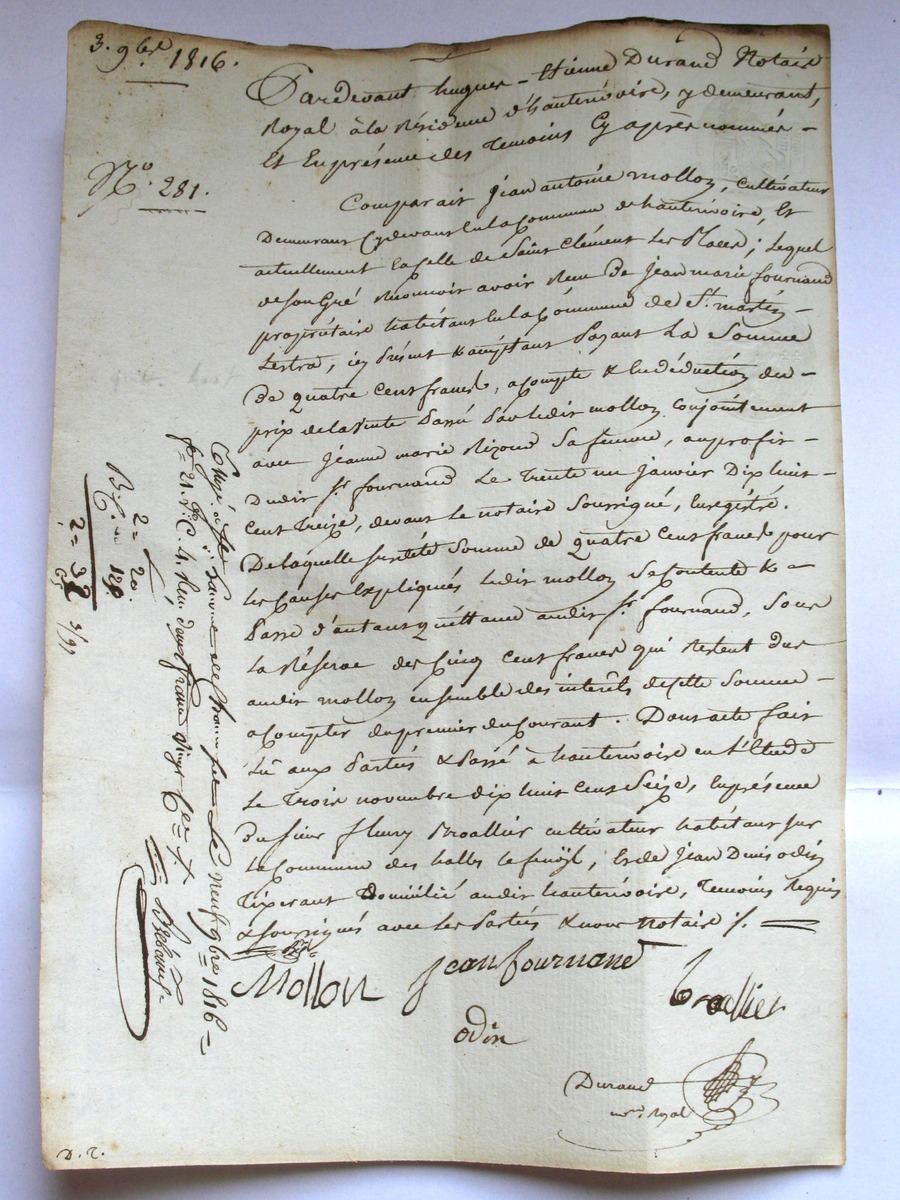 3. 9bre 1816.
No. 281.
Pardevant hugues-Etienne Durand Notaire
Royal à la Résidence d'hauterivoire, y demeurant,
Et En présence des Temoins Cy après nommés -
Comparait jean antoine molloy, cultivateur
Demeurant Cydevant En la Commune d'hauterivoire, Et
actuellement En celle de Saint Clément Les Places; Lequel
de son Gré Reconnoit avoir Reçu De jean marie fournand
propriétaire habitant En la Commune de St. martin
Lestra, icy Présent & acceptant Payant La Somme
De quatre Cent francs, acompte & En déduction du
prix de la Vente Passé Par Ledit molloy conjointement
avec jeanne marie Sa femme, au profit
Dudit Sr. fournand Le Trente un janvier Dix huit
Cent Treize, devant Le notaire Soussigné, Enregistré.
De laquelle susdite Somme de quatre Cent francs pour
Les Causes Expliquées Ledit molloy Se Contente &
Passe d'autant quittance audit Sr. fournand, Sous
La Réserve des Cinq Cent francs qui Restent dus
audit molloy ensemble des intérêts de cette Somme
a Compter du premier du Courant. Dont acte fait
Lu aux Parties & Passé à hauterivoire en L'Etude
Le Trois novembre dix huit cent Seize, En présence
Du Sieur fleury Broallier cultivateur habitant sur
La Commune des halles Le fenoyl, & de jean Denis odin
Tixerant Domicilié audit hauterivoire, Temoins Requis
& Soussignés avec Les Parties & nous notaire ./.
Mollon
jean fournand
Broallier
odin
Durand
nre. Royal
Le neuf 9bre 1816
fo. 21. Vo. C. 4. Reçu deux francs vingt Ces.
2 = 20
2 = 32
D. T.